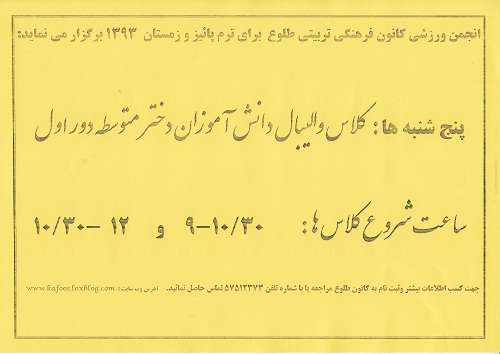 انجمن ورزشی کانون فرهنگی تربیتی طلوع برای ترم پائیز و زمستان ۱۳۹۳ برگزار می نماید:
پنج شنبه ها: کلاس والیبال دانش آموزان دختر متوسطه دور اول
ساعت شروع کلاس ها: ۹-۱۰/۳۰ و ۱۲ -۱۰/۳۰
جهت کسب اطلاعات بیشتر وثبت نام به کانون طلوع مراجعه یا با شماره تلفن ۵۷۵۱۲۳۷۳ تماس حاصل نمائید. آدرس وب سایت: www.kafoos.loxblog.com